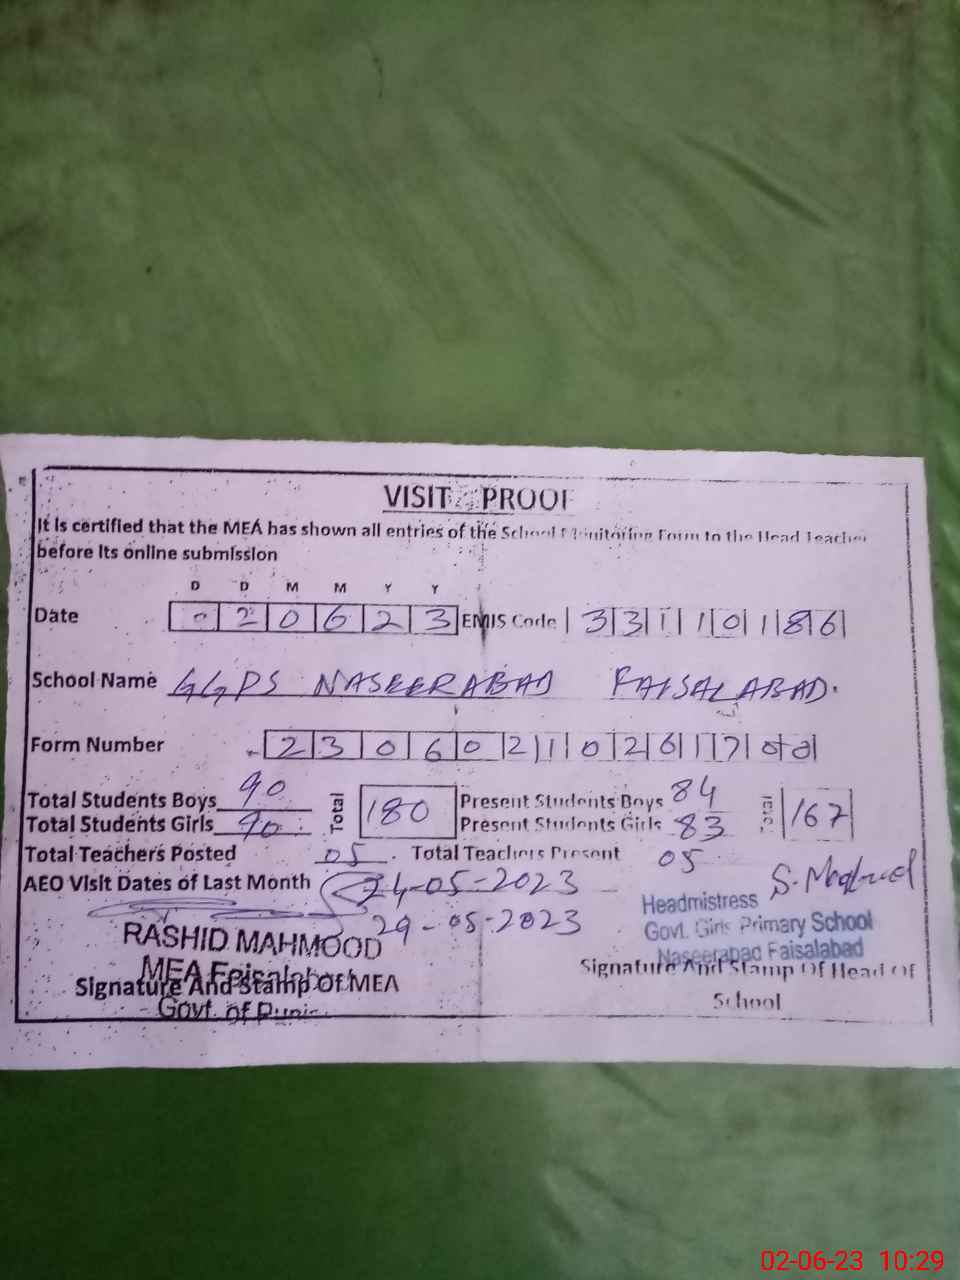 VISIT PROOF
It is certified that the MEA has shown all entries of the School Monitoring Form to the Head Teacher
before its online submission
D D M M Y Y
Date 0 2 0 6 2 3 EMIS Code 3 3 1 1 0 1 8 6
School Name GGPS NASEERABAD FAISALABAD.
Form Number 2 3 0 6 0 2 1 0 2 6 1 7
Total Students Boys 90 Total 180 Present Students Boys 84 Total 167
Total Students Girls 90 Present Students Girls 83
Total Teachers Posted 05 Total Teachers Present 05
AEO Visit Dates of Last Month 24-05-2023
29-05-2023
RASHID MAHMOOD
MEA Faisalabad
Signature And Stamp Of MEA
Govt. of
Headmistress
Govt. Girls Primary School
Naseerabad Faisalabad
Signature And Stamp Of Head Of
School
02-06-23 10:29